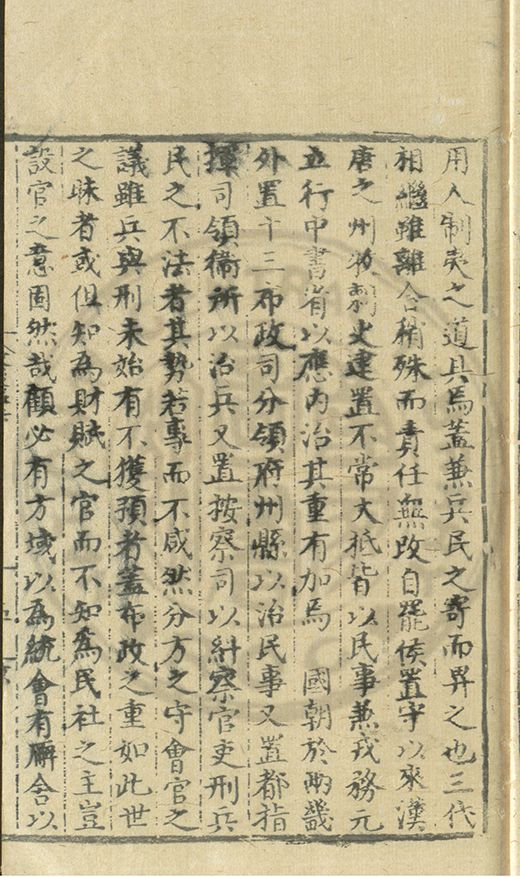 用人制夷之道具焉蓋兼兵民之寄而畀之也三代
相繼雖離合稍殊而責任無改自罷侯置守以來漢
唐之州牧刺史建置不常大抵皆以民事兼戎務元
立行中書省以應內治其重有加焉　國朝於兩畿
外置十三布政司分領府州縣以治民事又置都指
揮司領衞所以治兵又置按察司以糾察官吏刑兵
民之不法者其勢若專而不咸然分方之守會官之
議雖兵與刑未始有不獲預者蓋布政之重如此世
之昧者或但知為財賦之官而不知為民社之主豈
設官之意固然哉顧必有方域以為統會有廨舍以